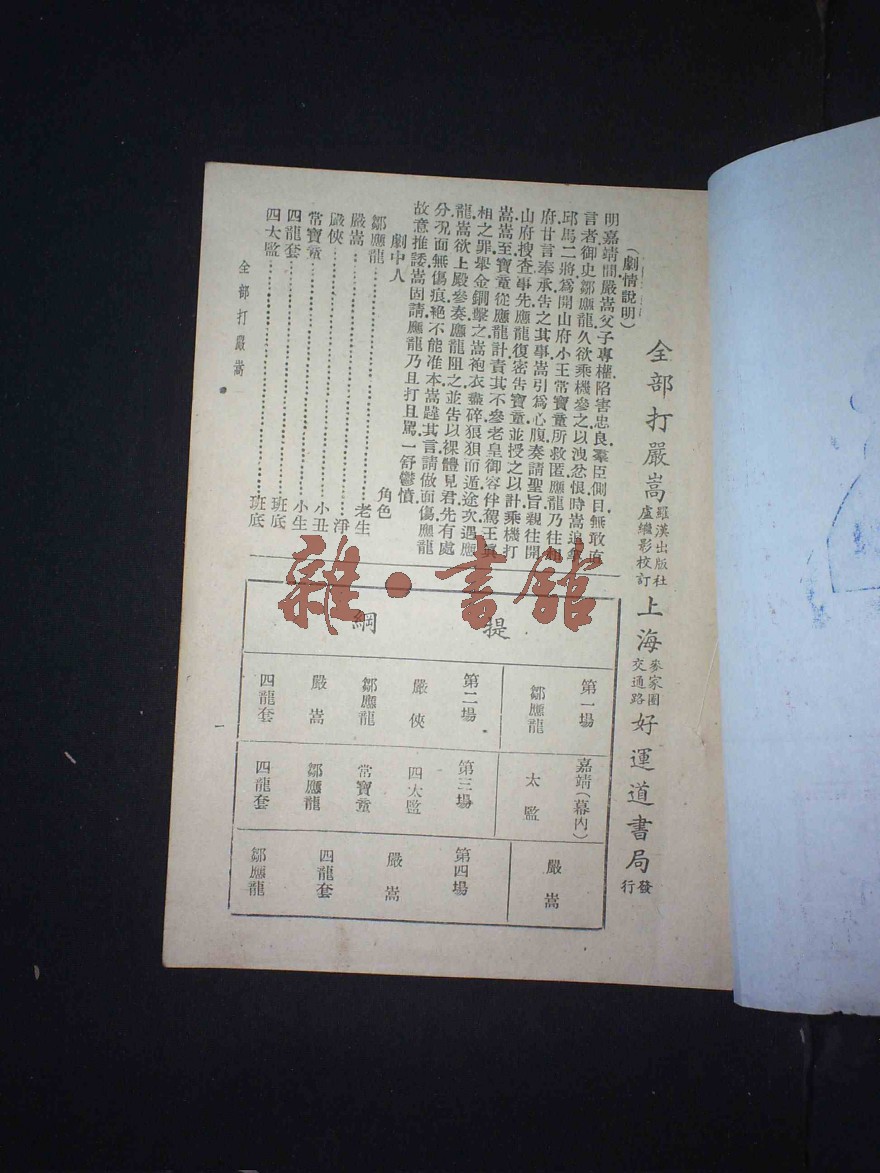 全部打嚴嵩 羅漢出版社 盧繼影校訂 上海 麥家圈 交通路 好運道書局 發行
(劇情說明)
明嘉靖間嚴嵩父子專權陷害忠良羣臣側目無敢直
言者御史鄒應龍久欲乘機參之以洩忿恨時嵩追拿
邱馬二將爲開山府小王常寶童所救匿應龍乃往嵩
府甘言奉承告之其事嵩引爲心腹奏請聖旨親往開
山府搜查事先應龍復密告寶童並授之以計乘機打
嵩嵩至寶童從應龍計責其不參老皇御容伴駕王眞
相之罪舉金鐧擊之嵩袍衣盡碎狼狽而遁途次遇應
龍嵩欲上殿參奏應龍阻之並告以裸體見君先有處
分況面無傷痕絕不能准本嵩韙其言請做面傷應龍
故意推諉嵩固請應龍乃且打且罵一舒鬱憤
劇中人 角色
鄒應龍 老生
嚴嵩 淨
嚴俠 小丑
常寶童 小生
四龍套 班底
四太監 班底
全部打嚴嵩
一
提綱
第一場 嘉靖(幕內) 嚴嵩
鄒應龍 太監
第二場 第三場 第四場
嚴俠 四太監 嚴嵩
鄒應龍 常寶童 四龍套
嚴嵩 鄒應龍 鄒應龍
四龍套 四龍套
雜·書館